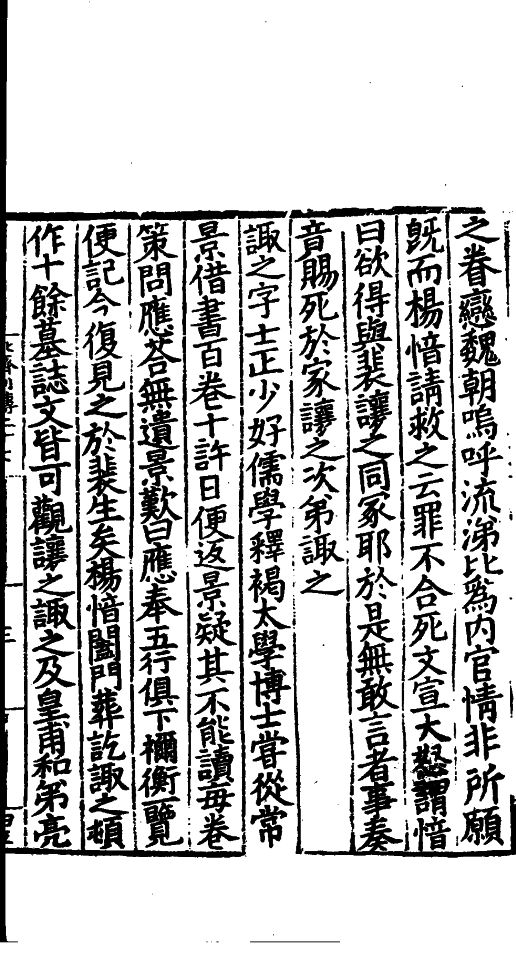 之眷戀魏朝嗚呼流涕比爲內官情非所願
旣而楊愔請救之云罪不合死文宣大怒謂愔
曰欲得與裴讓之同冢耶於是無敢言者事奏
竟賜死於家讓之次弟諏之
諏之字士正少好儒學釋褐太學博士嘗從常
景借書百卷十許日便返景疑其不能讀每卷
策問應荅無遺景歎曰應奉五行俱下禰衡一覽
便記今復見之於裴生矣楊愔闔門葬訖諏之頓
作十餘墓誌文皆可觀讓之諏之及皇甫和弟亮